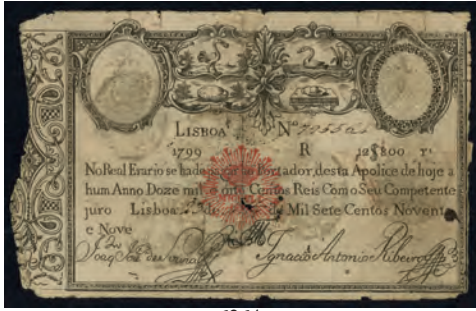 LISBOA Nº
1799 R 12$800 rˢ
No Real Erario se hade pagar ao Portador, desta Apolice de hoje a
hum Anno Doze mil e oito Centos Reis Com o Seu Competente
juro Lisboa de Mil Sete Centos Novent
e Nove
Ignacio Antonio Ribeiro